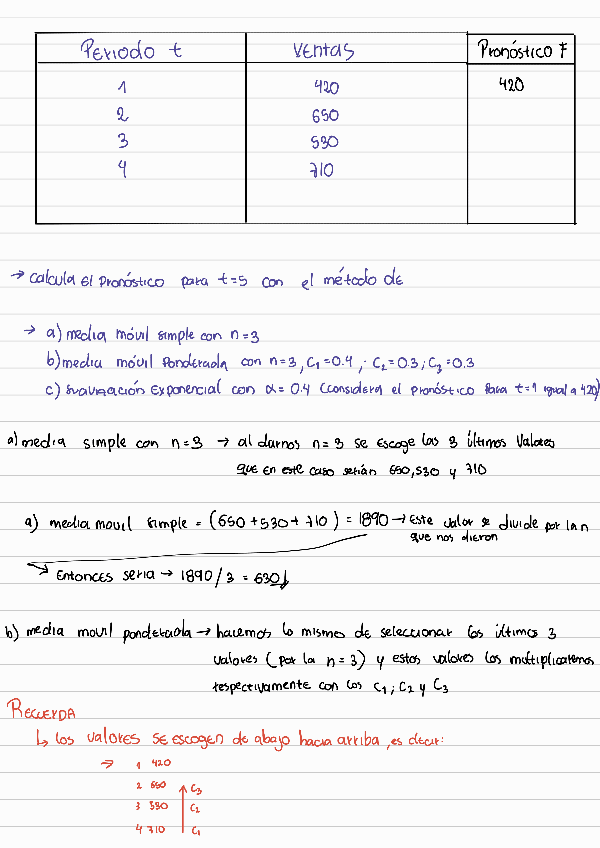 Periodo t Ventas Pronóstico F
1 420 420
2 650
3 530
4 710
→ Calcula el Pronóstico para t=5 con el método de
→ a) media móvil simple con n=3
b) media móvil Ponderada con n=3, C₁=0.4, C₂=0.3; C₃=0.3
c) Suavización Exponencial con α= 0.4 (considera el pronóstico para t=1 igual a 420)
a) media simple con n=3 → al darnos n=3 se escoge los 3 últimos Valores
que en este caso serían 650,530 y 710
a) media movil simple = (650+530+710) = 1890 → Este valor se divide por la n
que nos dieron
→ Entonces seria → 1890/3 = 630
b) media movil ponderada → hacemos lo mismos de seleccionar los últimos 3
valores (por la n=3) y estos valores los multiplicaremos
respectivamente con los C₁; C₂ y C₃
RECUERDA
↳ los valores se escogen de abajo hacia arriba, es decir:
→ 1 420
2 650 C₃
3 530 C₂
4 710 C₁